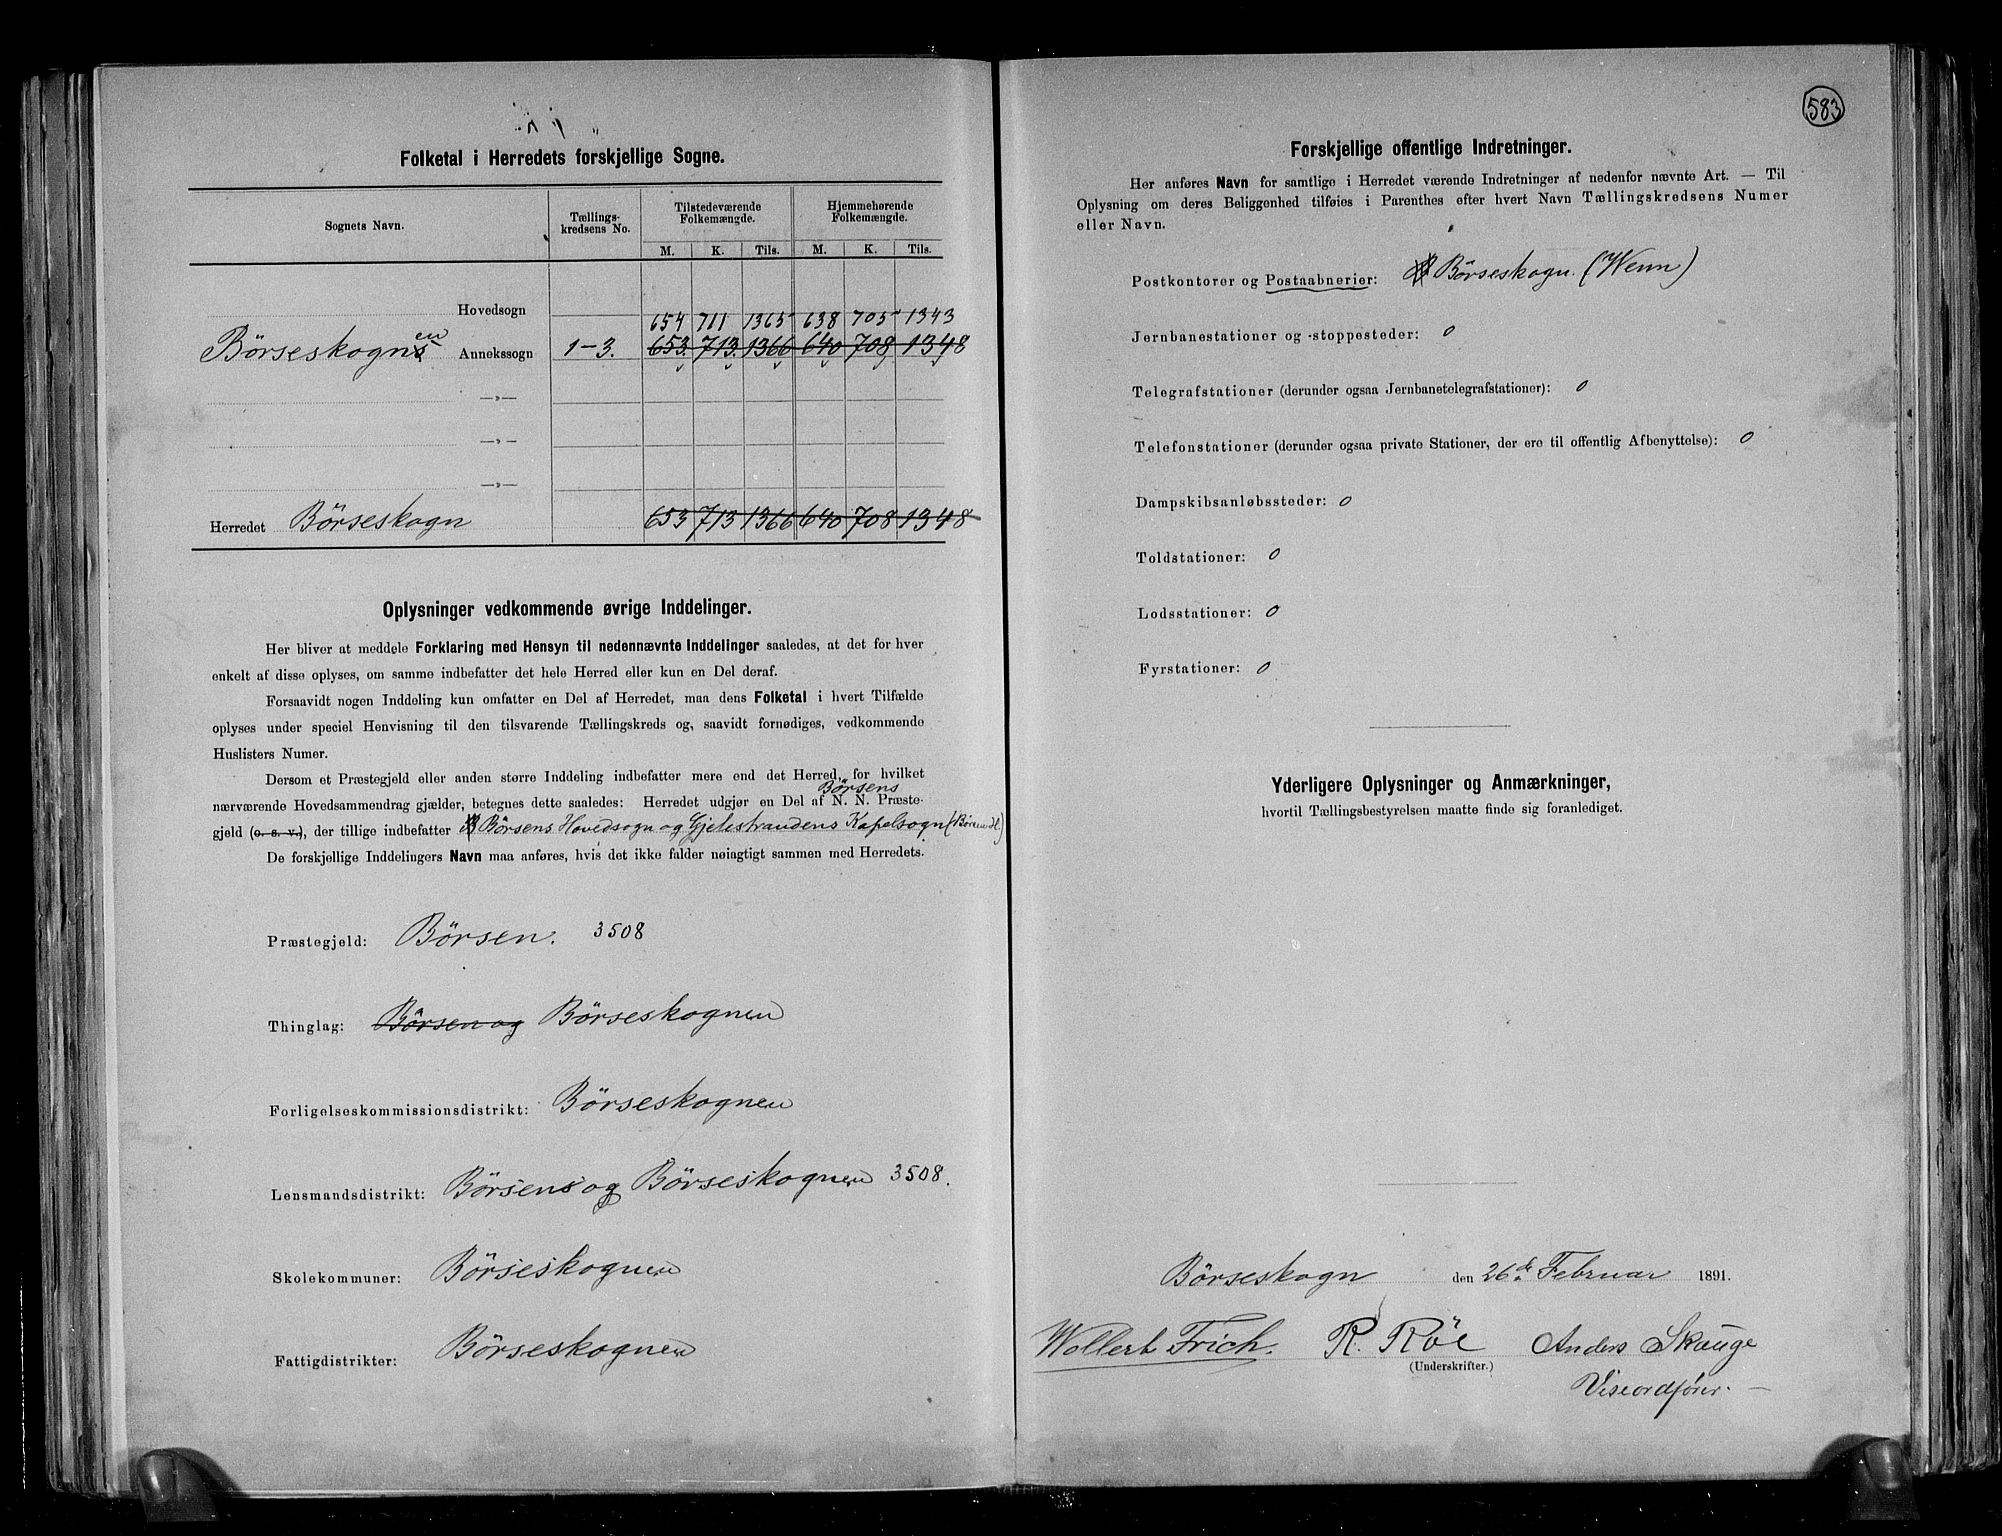 Folketal i Herredets forskjellige Sogne.
Sognets Navn.
Tællings-
kredsens No.
Tilstedeværende
Folkemængde.
Hjemmehørende
Folkemængde.
M. K. Tils. M. K. Tils.
Hovedsogn
654 711 1365 638 705 1343
en
Børseskogns Annekssogn 1-3. 653. 713. 1366 640 708 1348
—„—
—„—
—„—
Herredet Børseskogn 653 713 1366 640 708 1348
Oplysninger vedkommende øvrige Inddelinger.
Her bliver at meddele Forklaring med Hensyn til nedennævnte Inddelinger saaledes, at det for hver
enkelt af disse oplyses, om samme indbefatter det hele Herred eller kun en Del deraf.
Forsaavidt nogen Inddeling kun omfatter en Del af Herredet, maa dens Folketal i hvert Tilfælde
oplyses under speciel Henvisning til den tilsvarende Tællingskreds og, saavidt fornødiges, vedkommende
Huslisters Numer.
Dersom et Præstegjeld eller anden større Inddeling indbefatter mere end det Herred, for hvilket
Børsens
nærværende Hovedsammendrag gjælder, betegnes dette saaledes: Herredet udgjør en Del af N. N. Præste-
gjeld (o. s. v.), der tillige indbefatter Børsens Hovedsogn og Gjelestrandens Kapelsogn (Børsen H.)
De forskjellige Inddelingers Navn maa anføres, hvis det ikke falder nøiagtigt sammen med Herredets.
Præstegjeld: Børsen. 3508
Thinglag: Børsen og Børseskognen
Forligelseskommissionsdistrikt: Børseskognen
Lensmandsdistrikt: Børsens og Børseskognen 3508.
Skolekommuner: Børseskognen
Fattigdistrikter: Børseskognen
583
Forskjellige offentlige Indretninger.
Her anføres Navn for samtlige i Herredet værende Indretninger af nedenfor nævnte Art. — Til
Oplysning om deres Beliggenhed tilføies i Parenthes efter hvert Navn Tællingskredsens Numer
eller Navn.
Postkontorer og Postaabnerier: Børseskogn. (Wenn)
Jernbanestationer og -stoppesteder: 0
Telegrafstationer (derunder ogsaa Jernbanetelegrafstationer): 0
Telefonstationer (derunder ogsaa private Stationer, der ere til offentlig Afbenyttelse): 0
Dampskibsanløbssteder: 0
Toldstationer: 0
Lodsstationer: 0
Fyrstationer: 0
Yderligere Oplysninger og Anmærkninger,
hvortil Tællingsbestyrelsen maatte finde sig foranlediget.
Børseskogn den 26de Februar 1891.
Wollert Frich. R. Röe Anders Skauge
(Underskrifter.)
Viseordfører.